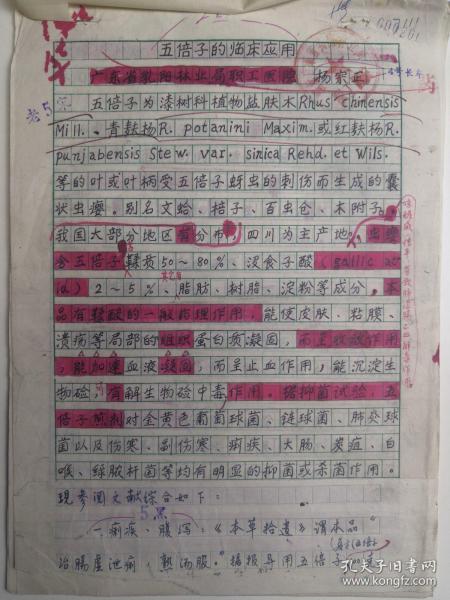 五倍子的临床应用
广东省乳阳林业局职工医院 杨家正
五倍子为漆树科植物盐肤木Rhus chinensis
Mill.、青麸杨R. potanini Maxim.或红麸杨R.
punjabensis Stew. var. sinica Rehd. et Wils.
等的叶或叶柄受五倍子蚜虫的刺伤而生成的囊
状虫瘿。别名文蛤、桔子、百虫仓、木附子。
我国大部分地区有分布，四川为主产地。虫瘿
含五倍子鞣质50～80%、没食子酸（gallic ac-
id）2～5%、脂肪、树脂、淀粉等成分。本
品有鞣酸的一般药理作用，能使皮肤、粘膜、
溃疡等局部的组织蛋白质凝固，而呈收敛作用
，能加速血液凝固，而呈止血作用，能沉淀生
物硷，有解生物硷中毒作用。据抑菌试验，五
倍子煎剂对金黄色葡萄球菌、链球菌、肺炎球
菌以及伤寒、副伤寒、痢疾、大肠、炭疽、白
喉、绿脓杆菌等均有明显的抑菌或杀菌作用。
现参阅文献综合如下：
5黑
一、痢疾、腹泻：《本草拾遗》谓本品“
治肠虚泄痢，熟汤服。”据报导用五倍子
老5宋
孔夫子旧书网